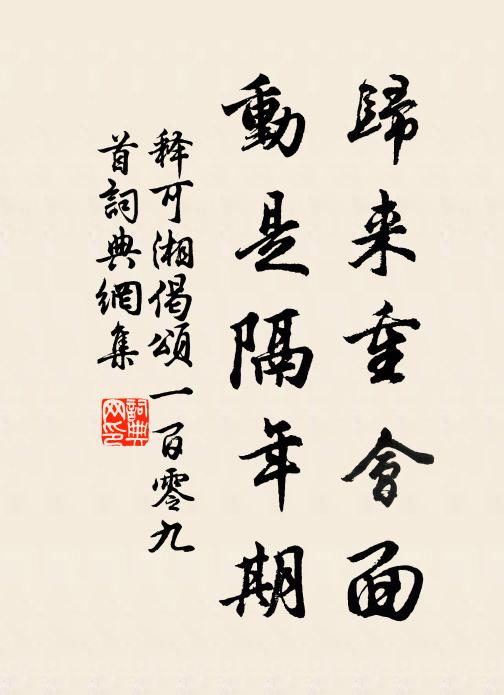 歸来重會面
動是隔年期
释可湘偈頌一百零九
首詞典網集
詞典
网印